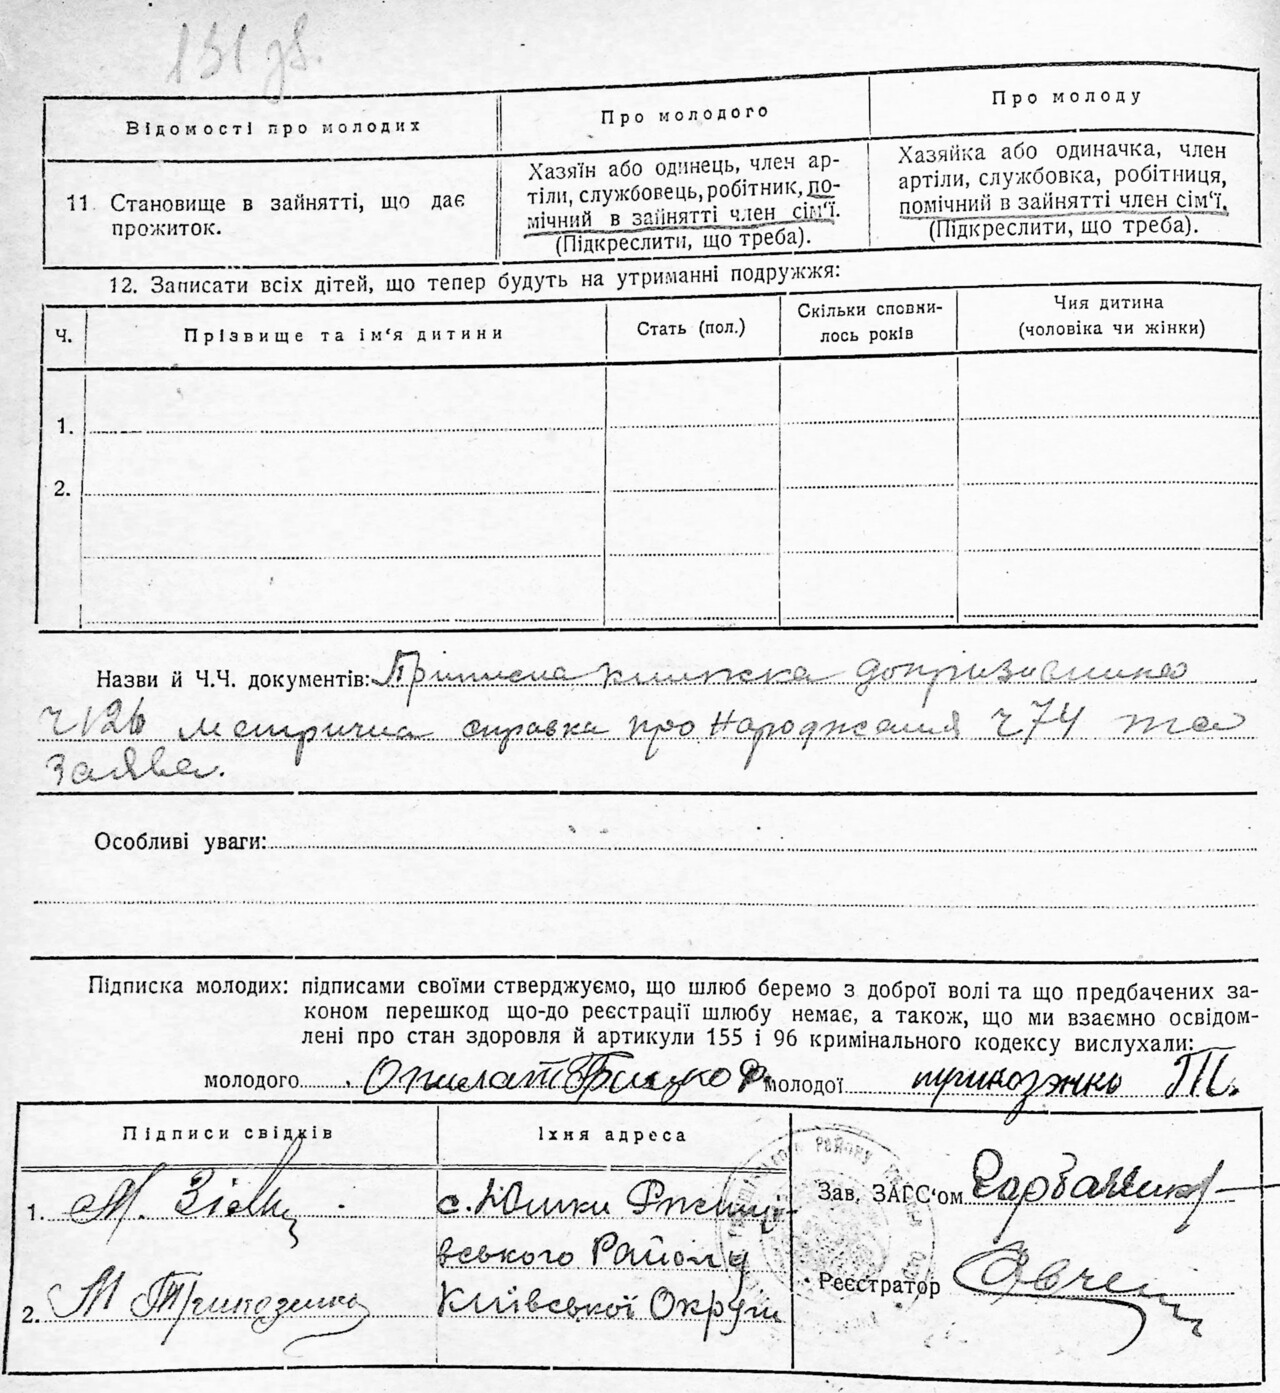 131 зв.
Відомості про молодих
Про молодого
Про молоду
11 Становище в зайнятті, що дає
прожиток.
Хазяїн або одинець, член ар-
тіли, службовець, робітник, по-
мічний в зайнятті член сім'ї.
(Підкреслити, що треба).
Хазяйка або одиначка, член
артіли, службовка, робітниця,
помічний в зайнятті член сім'ї.
(Підкреслити, що треба).
12. Записати всіх дітей, що тепер будуть на утриманні подружжя:
Ч.
Прізвище та ім'я дитини
Стать (пол.)
Скільки сповни-
лось років
Чия дитина
(чоловіка чи жінки)
1.
2.
Назви й Ч.Ч. документів: Приписна книжка допризивника
ч 126 метрична справка про народження ч 74 та
Заява.
Особливі уваги:
Підписка молодих: підписами своїми стверджуємо, що шлюб беремо з доброї волі та що предбачених за-
коном перешкод що-до реєстрації шлюбу немає, а також, що ми взаємно освідом-
лені про стан здоровля й артикули 155 і 96 кримінального кодексу вислухали:
молодого молодої Т.
Підписи свідків
Їхня адреса
1. М.
с. Юшки Ржищі-
вського Району
2. М Трикозенко
Київської Округи
Зав. ЗАГС'ом
Реєстратор